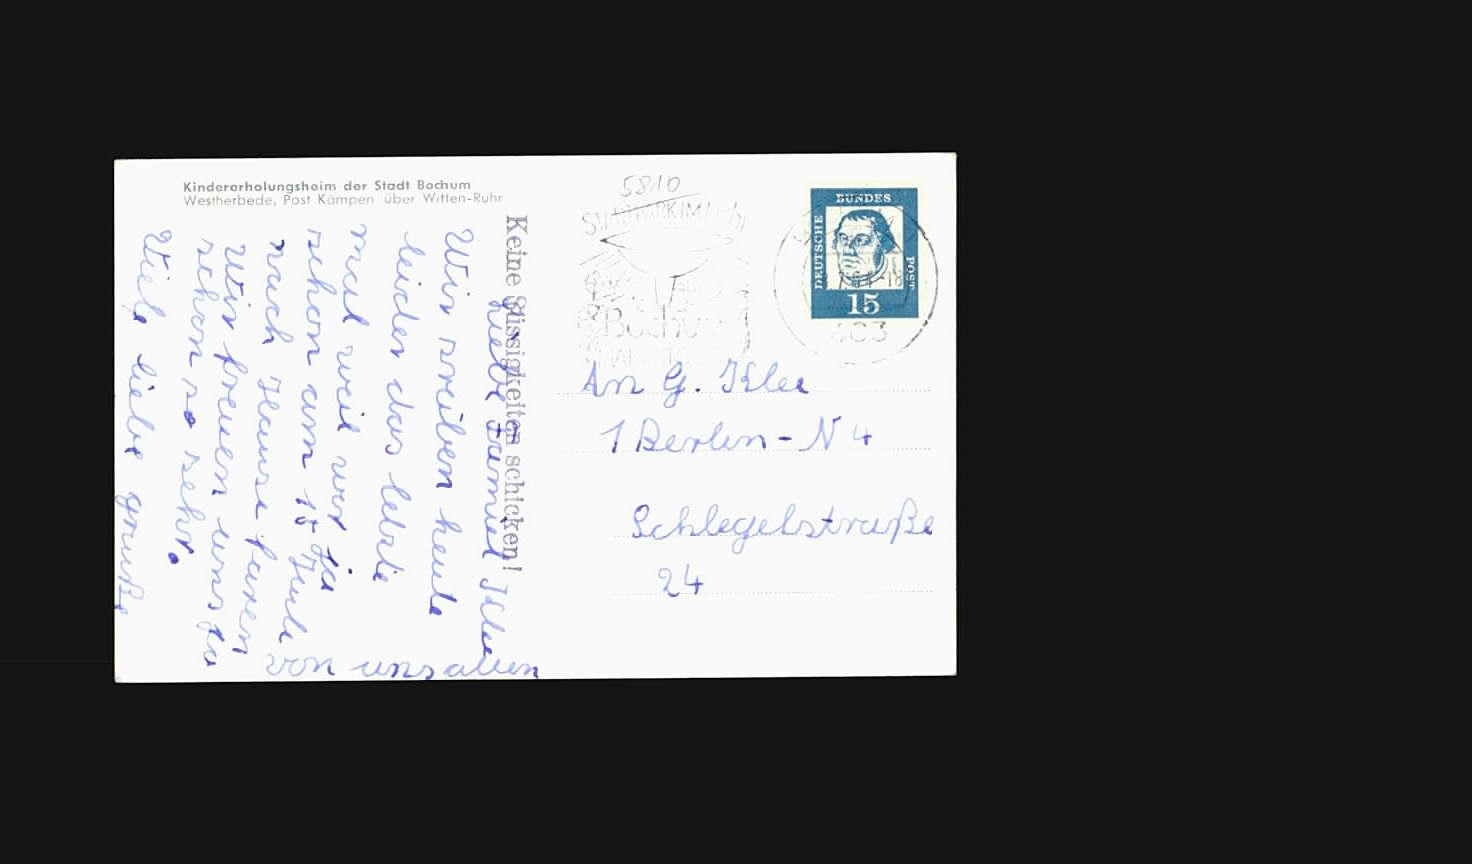 Kindererholungsheim der Stadt Bochum
Westherbede, Post Kämpen über Witten-Ruhr
5810
Keine Süssigkeiten schicken!
Liebe Familie Klee
Wir sreiben heute
leider das letzte
mal weil wir ja
schon am 15 Juli
nach Hause faren
Wir freuen uns ja
schon so sehr.
Viele liebe grüße
von uns allen
Bochum
463
DEUTSCHE BUNDES POST
15
An G. Klee
1 Berlin - N 4
Schlegelstraße
24